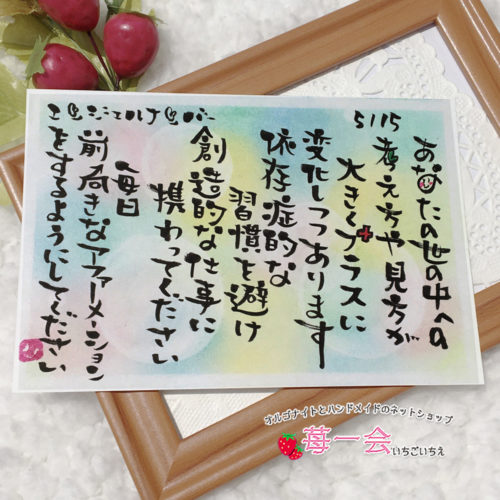 エンジェルナンバー
5115
あなたの世の中への
考え方や見方が
大きくプラスに
変化しつつあります
依存症的な
習慣を避け
創造的な仕事に
携わってください
毎日
前向きなアファーメーション
をするようにしてください
オルゴナイトとハンドメイドのネットショップ
苺一会
いちごいちえ